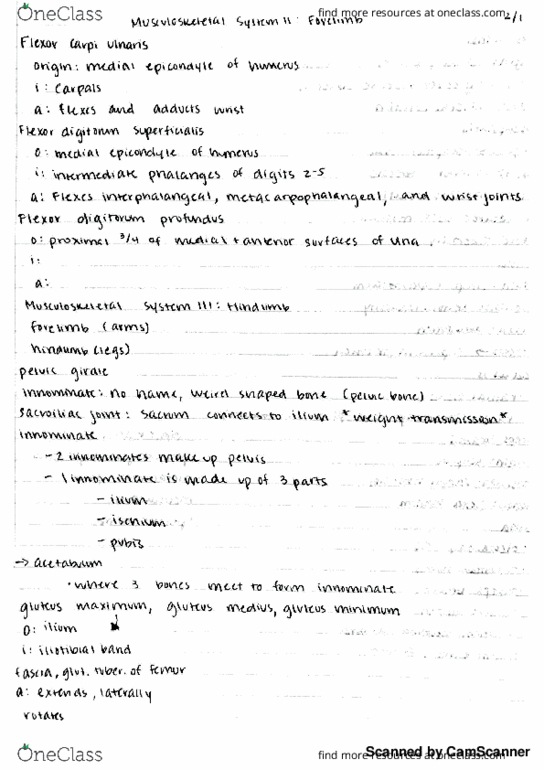 OneClass
find more resources at oneclass.com
2/1
Musculoskeletal System II: Forelimb
Flexor carpi ulnaris
origin: medial epicondyle of humerus
i: carpals
a: flexes and adducts wrist
Flexor digitorum superficialis
o: medial epicondyle of humerus
i: intermediate phalanges of digits 2-5
a: Flexes interphalangeal, metacarpophalangeal, and wrist joints
Flexor digitorum profundus
o: proximal 3/4 of medial + anterior surfaces of ulna
i:
a:
Musculoskeletal System III: Hindlimb
forelimb (arms)
hindlimb (legs)
pelvic girdle
innominate: no name, weird shaped bone (pelvic bone)
sacroiliac joint: sacrum connects to ilium *weight transmission*
innominate
- 2 innominates make up pelvis
- 1 innominate is made up of 3 parts
- ilium
- ischium
- pubis
→ acetabulum
• where 3 bones meet to form innominate
gluteus maximum, gluteus medius, gluteus minimum
O: ilium ↓
i: iliotibial band
fascia, glut. tuber. of femur
a: extends, laterally
rotates
OneClass
find more resources at oneclass.com
Scanned by CamScanner